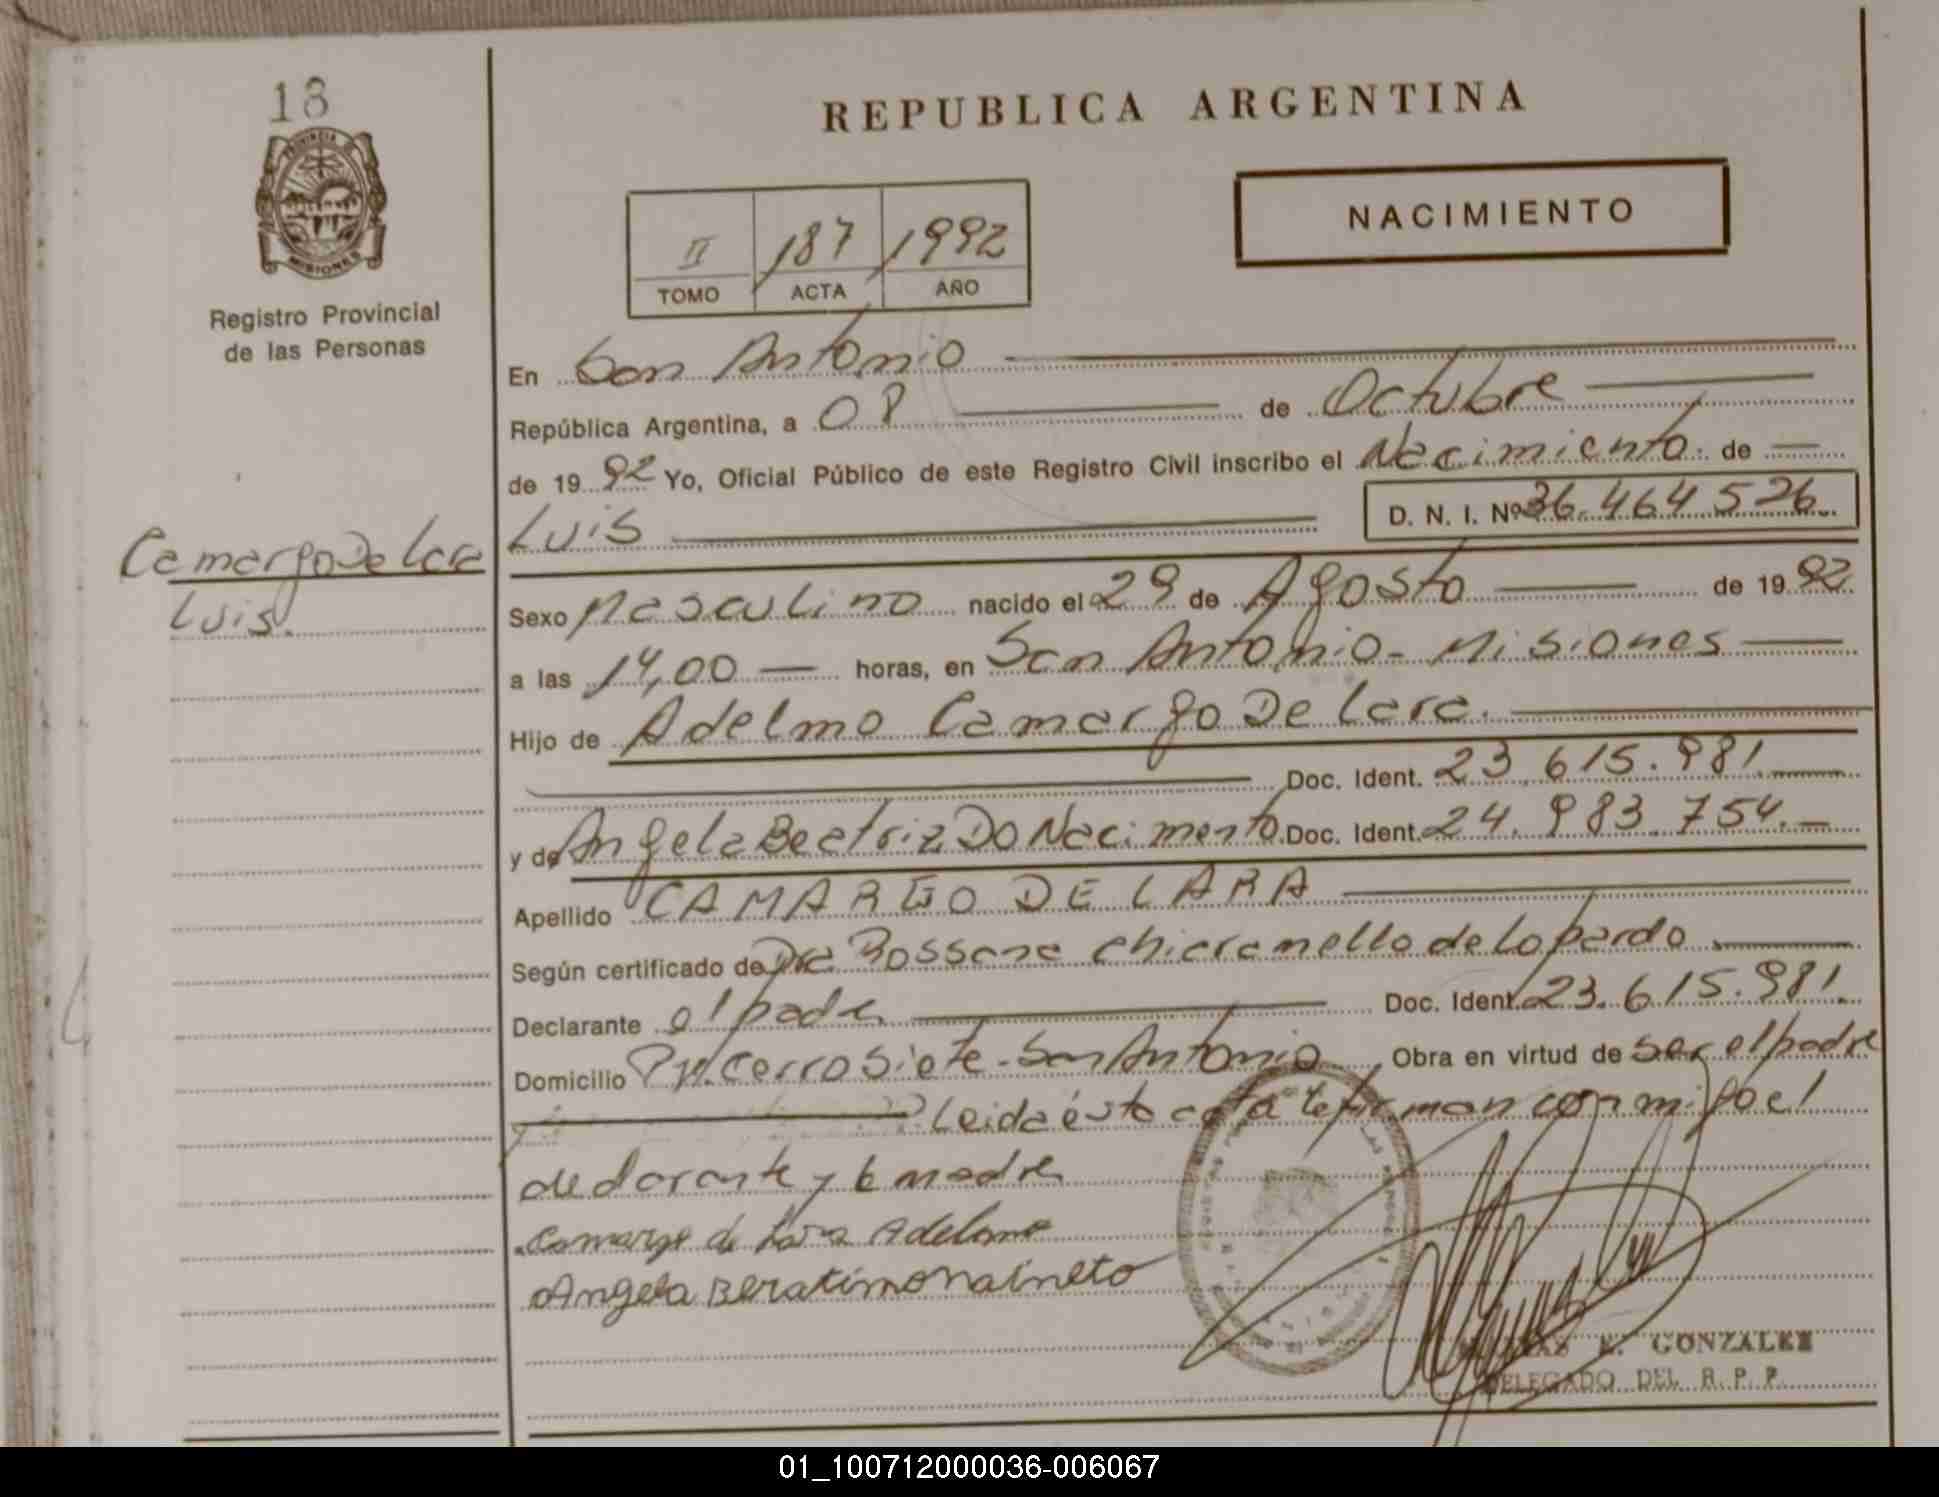 18
PROVINCIA DE
MISIONES
Registro Provincial
de las Personas
Camargo De Lara
Luis.
REPUBLICA ARGENTINA
II 187 1992
TOMO ACTA AÑO
NACIMIENTO
En San Antonio
República Argentina, a 08 de Octubre
de 1992 Yo, Oficial Público de este Registro Civil inscribo el Nacimiento. de
Luis D. N. I. Nº 36.464.526.
Sexo Masculino nacido el 29 de Agosto de 1992.
a las 14,00 horas, en San Antonio - Misiones
Hijo de Adelmo Camargo De Lara.
Doc. Ident. 23.615.981.
y de Angela Beatriz Do Nacimento. Doc. Ident. 24.983.754.
Apellido CAMARGO DE LARA
Según certificado de Dra Rossana Chiaramello de Lopardo
Declarante el padre Doc. Ident. 23.615.981.
Domicilio Cerro Siete - San Antonio Obra en virtud de ser el padre
Leida ésta acta la firman conmigo el
declarante y la madre
Camargo de Lara Adelmo
Angela
GONZALEZ
DELEGADO DEL R. P. P.
01_100712000036-006067